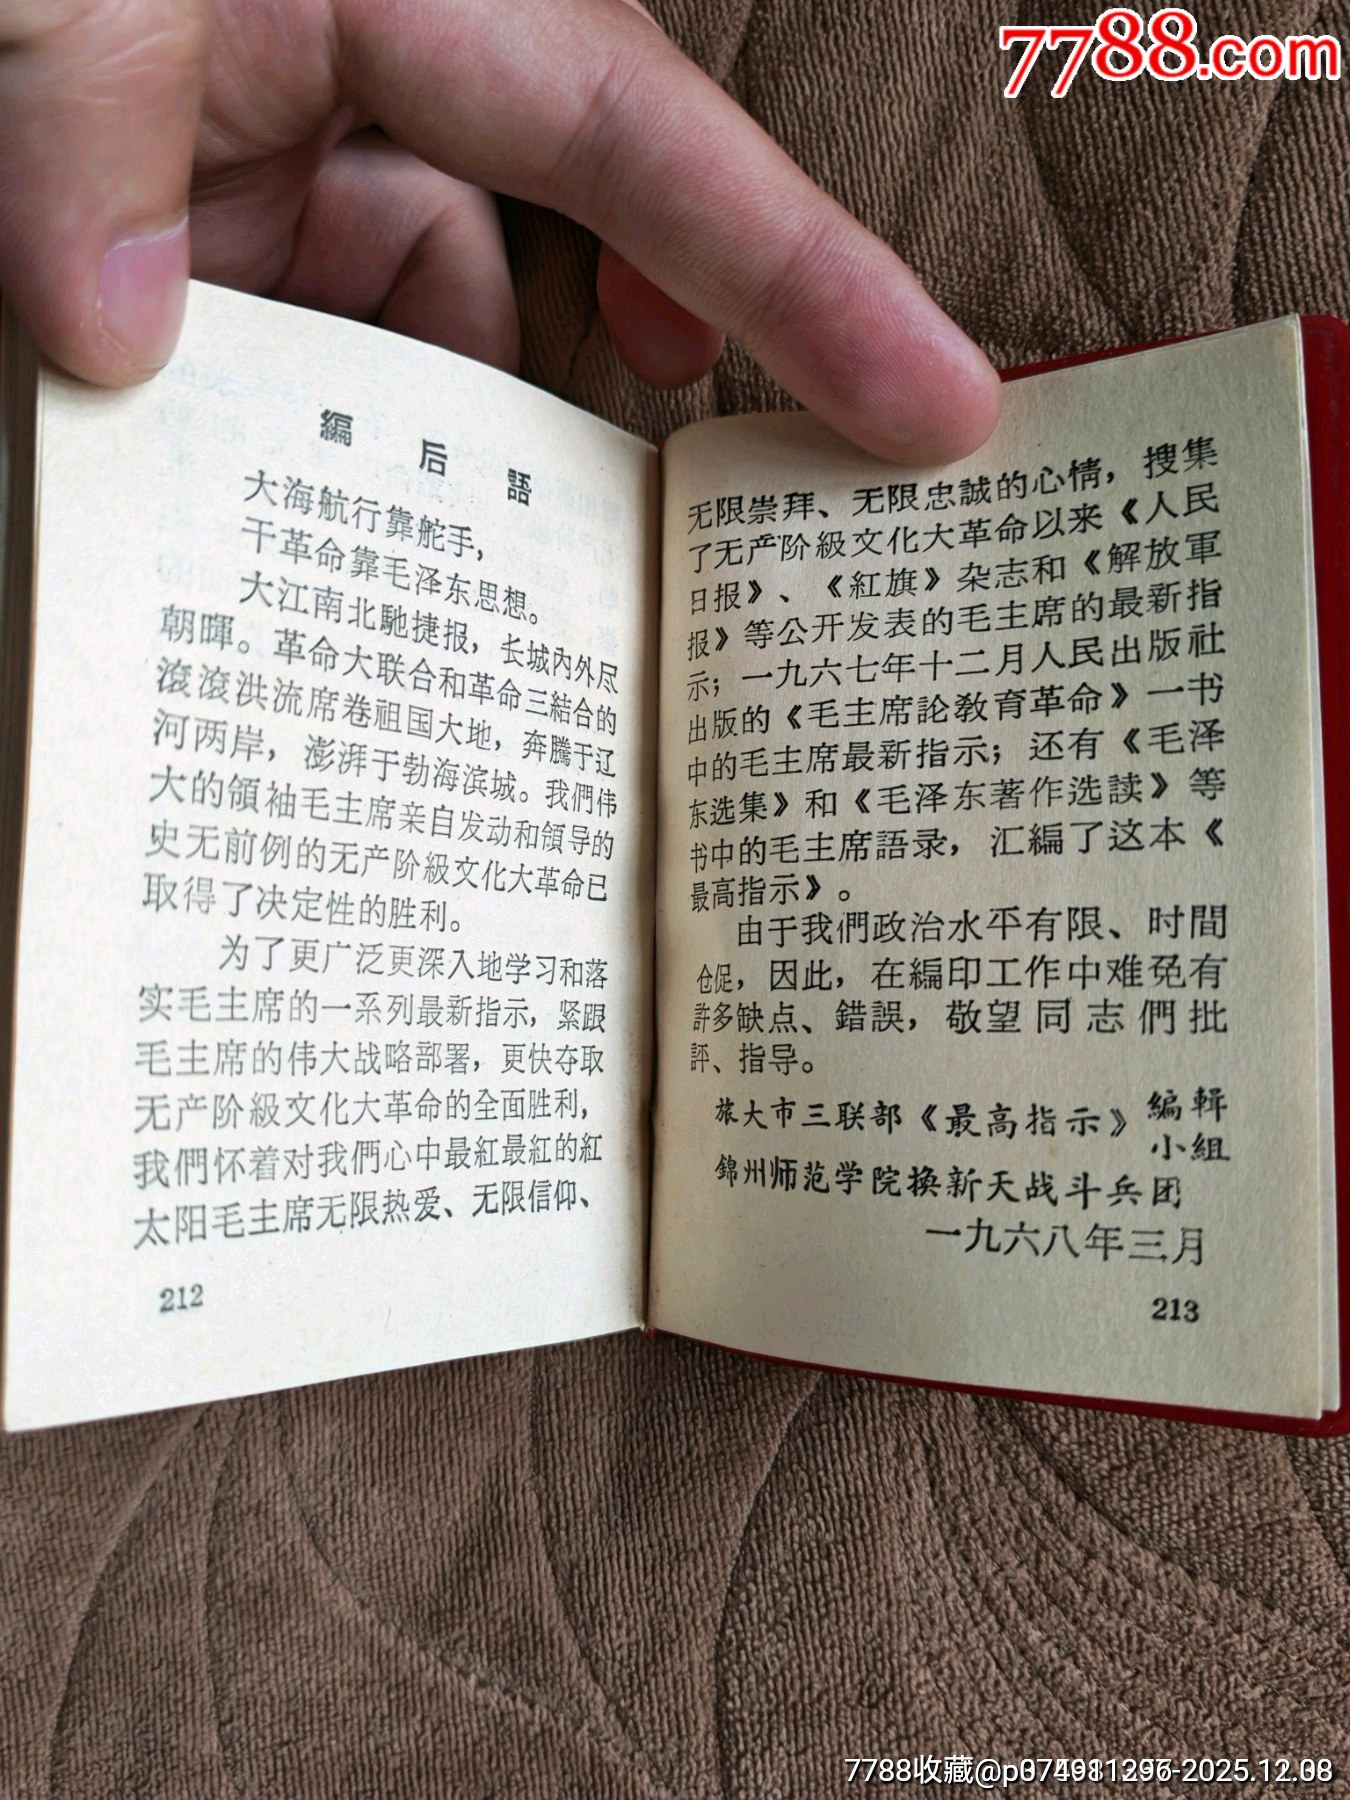 7788.com
編后語
大海航行靠舵手，
干革命靠毛泽东思想。
大江南北馳捷报，长城內外尽
朝暉。革命大联合和革命三結合的
滾滾洪流席卷祖国大地，奔騰于辽
河两岸，澎湃于勃海滨城。我們伟
大的領袖毛主席亲自发动和領导的
史无前例的无产阶級文化大革命已
取得了决定性的胜利。
为了更广泛更深入地学习和落
实毛主席的一系列最新指示，紧跟
毛主席的伟大战略部署，更快夺取
无产阶級文化大革命的全面胜利，
我們怀着对我們心中最紅最紅的紅
太阳毛主席无限热爱、无限信仰、
212
无限崇拜、无限忠誠的心情，搜集
了无产阶級文化大革命以来《人民
日报》、《紅旗》杂志和《解放軍
报》等公开发表的毛主席的最新指
示；一九六七年十二月人民出版社
出版的《毛主席論教育革命》一书
中的毛主席最新指示；还有《毛泽
东选集》和《毛泽东著作选读》等
书中的毛主席語录，汇編了这本《
最高指示》。
由于我們政治水平有限、时間
仓促，因此，在編印工作中难免有
許多缺点、錯誤，敬望同志們批
評、指导。
旅大市三联部《最高指示》編輯
小組
錦州师范学院换新天战斗兵团
一九六八年三月
213
7788收藏@p074981296-2025.12.08